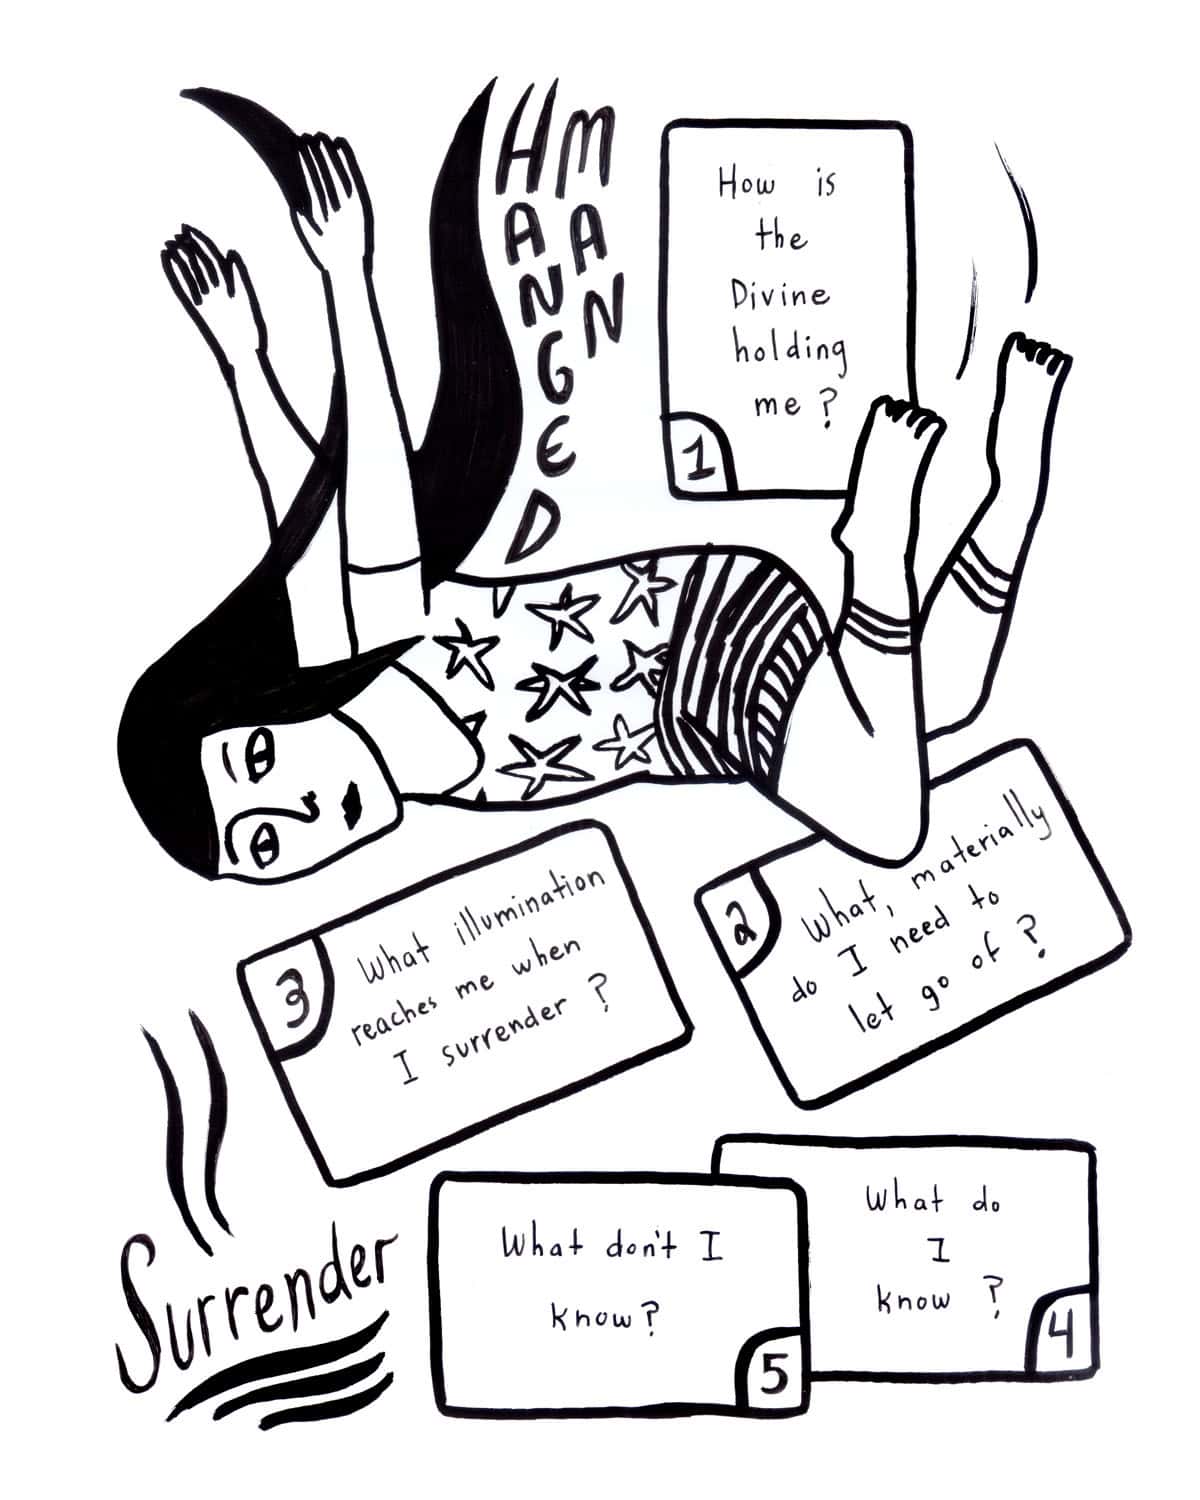 HANGED
MAN
How is
the
Divine
holding
me?
1
2
What, materially
do I need to
let go of?
3
What illumination
reaches me when
I surrender?
What do
I
know?
4
What don't I
know?
5
Surrender